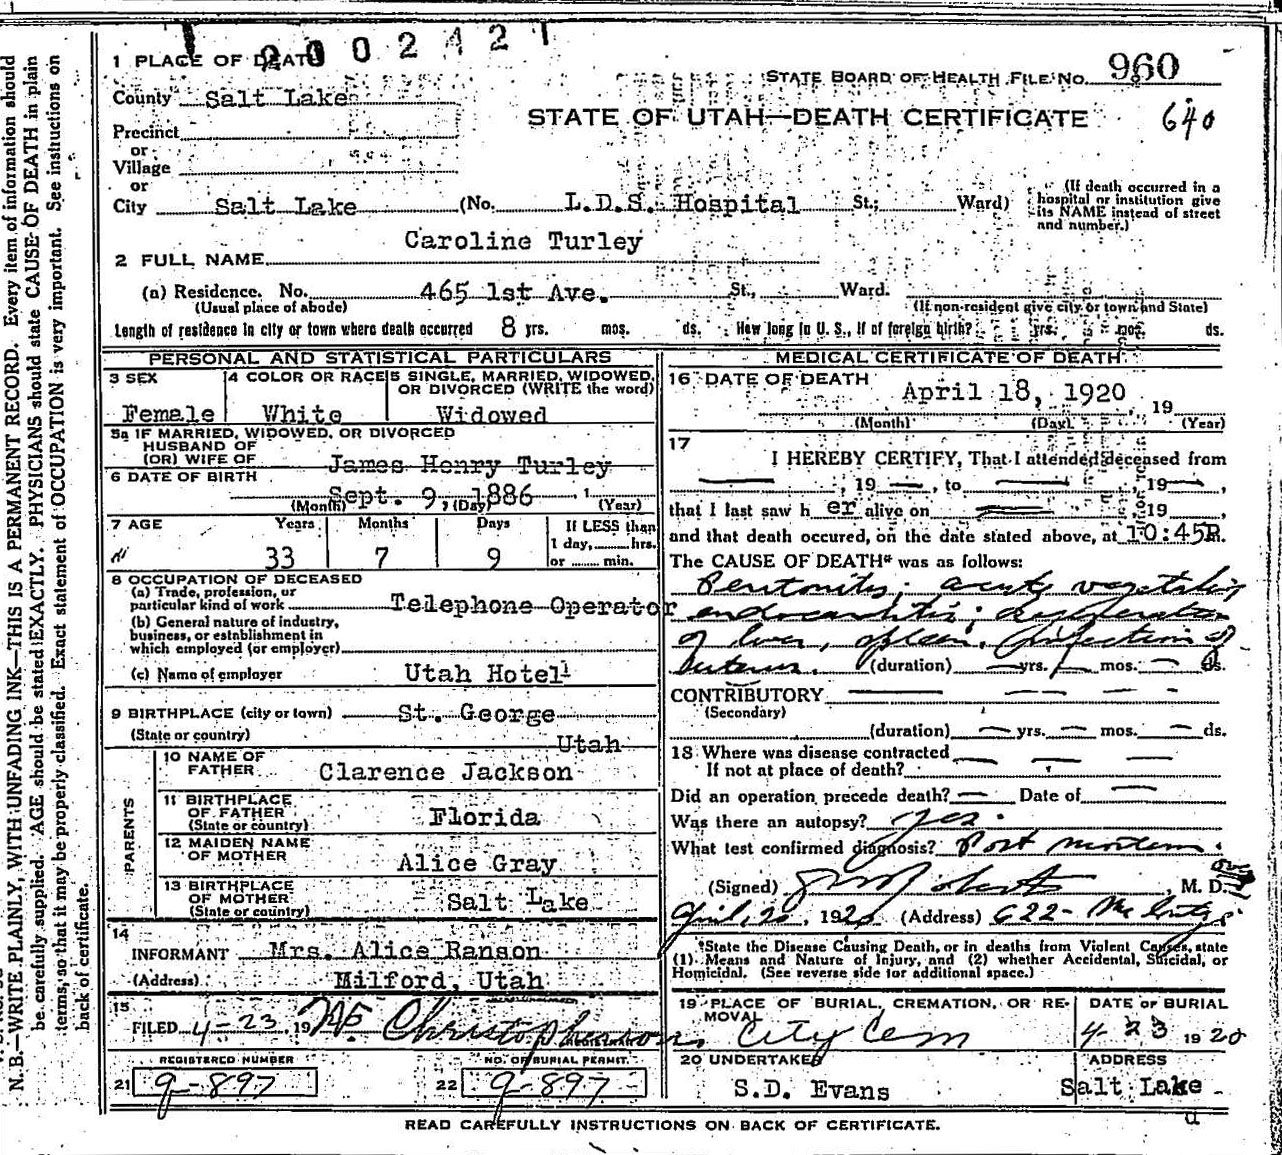 0002421
1 PLACE OF DEATH
STATE BOARD OF HEALTH FILE NO. 960
County Salt Lake
STATE OF UTAH—DEATH CERTIFICATE 640
Precinct
or
Village
or
City Salt Lake (No. L.D.S. Hospital St.; Ward) (If death occurred in a hospital or institution give its NAME instead of street and number.)
2 FULL NAME Caroline Turley
(a) Residence. No. 465 1st Ave. St., Ward.
(Usual place of abode) (If non-resident give city or town and State)
Length of residence in city or town where death occurred 8 yrs. mos. ds. How long in U. S., if of foreign birth? yrs. mos. ds.
PERSONAL AND STATISTICAL PARTICULARS
3 SEX
Female
4 COLOR OR RACE
White
5 SINGLE, MARRIED, WIDOWED, OR DIVORCED (WRITE the word)
Widowed
5a IF MARRIED, WIDOWED, OR DIVORCED
HUSBAND OF
(OR) WIFE OF James Henry Turley
6 DATE OF BIRTH
Sept. 9, 1886
(Month) (Day) (Year)
7 AGE Years Months Days
33 7 9
If LESS than
1 day, hrs.
or min.
8 OCCUPATION OF DECEASED
(a) Trade, profession, or
particular kind of work Telephone Operator
(b) General nature of industry,
business, or establishment in
which employed (or employer)
(c) Name of employer Utah Hotel
9 BIRTHPLACE (city or town) St. George
(State or country) Utah
PARENTS
10 NAME OF
FATHER Clarence Jackson
11 BIRTHPLACE
OF FATHER
(State or country) Florida
12 MAIDEN NAME
OF MOTHER Alice Gray
13 BIRTHPLACE
OF MOTHER
(State or country) Salt Lake
14
INFORMANT Mrs. Alice Ranson
(Address) Milford, Utah
15
FILED 4-23, 19 Christopherson
REGISTRAR
REGISTERED NUMBER
21 9-897
NO. OF BURIAL PERMIT.
22 9-897
MEDICAL CERTIFICATE OF DEATH
16 DATE OF DEATH April 18, 1920, 19
(Month) (Day) (Year)
17
I HEREBY CERTIFY, That I attended deceased from
, 19 , to , 19 ,
that I last saw h er alive on , 19 ,
and that death occured, on the date stated above, at 10:45P.m.
The CAUSE OF DEATH* was as follows:
Peritonitis; acute vegetative
endocarditis; degeneration
of liver, spleen. Infection of
uterus. (duration) yrs. mos. ds.
CONTRIBUTORY
(Secondary)
(duration) yrs. mos. ds.
18 Where was disease contracted
If not at place of death?
Did an operation precede death? Date of
Was there an autopsy? yes.
What test confirmed diagnosis? Post mortem.
(Signed) , M. D.
April, 20, 1920 (Address) 622
*State the Disease Causing Death, or in deaths from Violent Causes, state
(1) Means and Nature of Injury, and (2) whether Accidental, Suicidal, or
Homicidal. (See reverse side for additional space.)
19 PLACE OF BURIAL, CREMATION, OR RE-
MOVAL City Cem
DATE OF BURIAL
4 23 1920
20 UNDERTAKER
S.D. Evans
ADDRESS
Salt Lake
READ CAREFULLY INSTRUCTIONS ON BACK OF CERTIFICATE.
N. B.—WRITE PLAINLY, WITH UNFADING INK—THIS IS A PERMANENT RECORD. Every item of information should
be carefully supplied. AGE should be stated EXACTLY. PHYSICIANS should state CAUSE OF DEATH in plain
terms, so that it may be properly classified. Exact statement of OCCUPATION is very important. See instructions on
back of certificate.